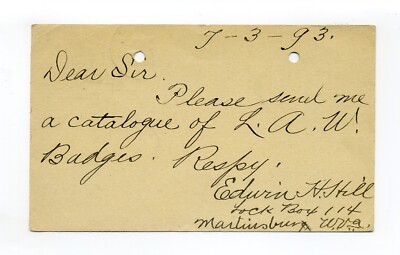 7-3-93.
Dear Sir.
Please send me
a catalogue of L. A. W.
Badges. Respy.
Edwin H. Hill
Lock Box 114
Martinsburg W.Va.